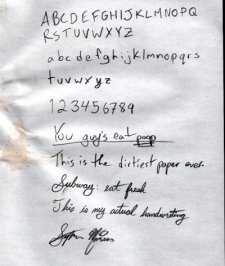 ABCDEFGHIJKLMNOPQ
RSTUVWXYZ
abcdefghijklmnopqrs
tuvwxyz
123456789
You guy's eat poop
This is the dirtiest paper ever.
Subway: eat fresh
This is my actual handwriting